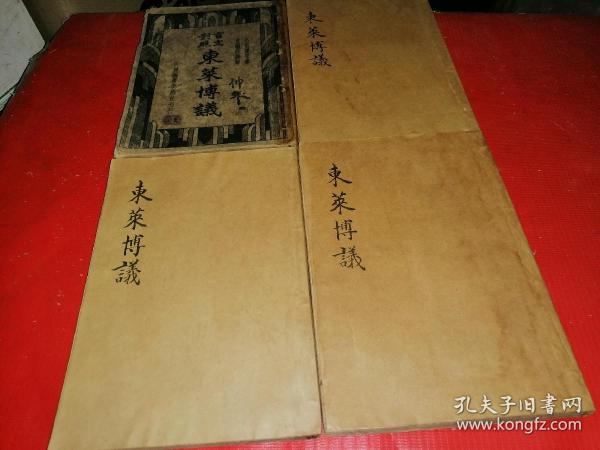 言文
對照
東萊博議
仲舉
東萊博議
東萊博議
東萊博議
孔夫子旧书网
www.kongfz.com